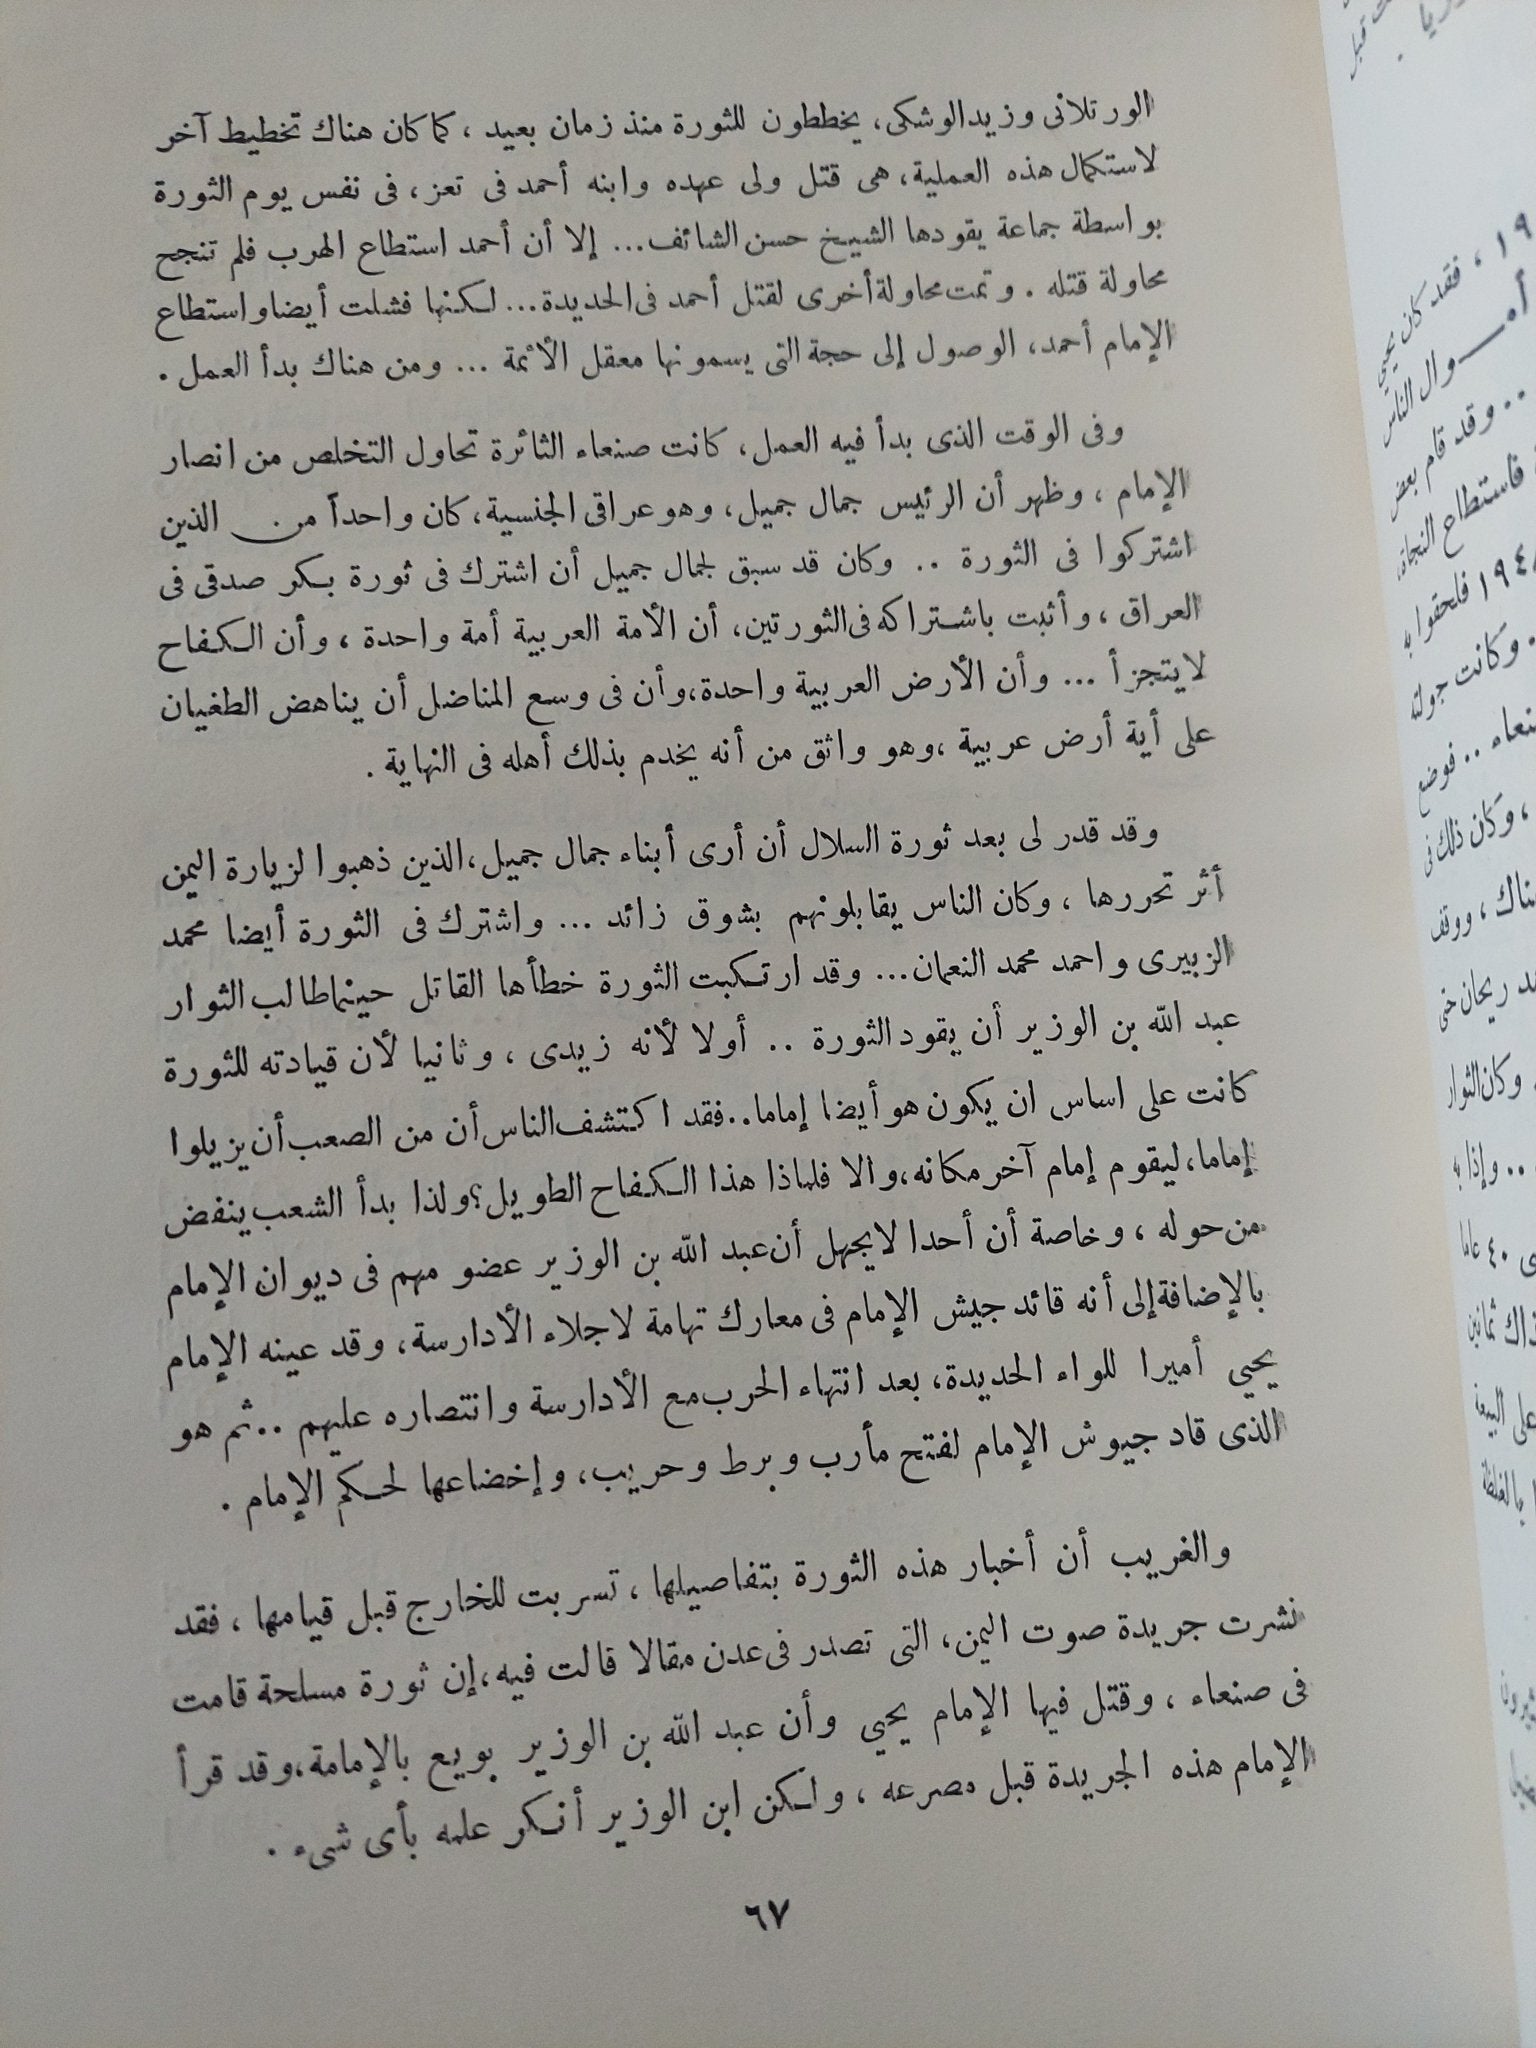 الورتلانى وزيد الوشكى، يخططون للثورة منذ زمان بعيد ، كما كان هناك تخطيط آخر
لاستكمال هذه العملية، هى قتل ولى عهده وابنه أحمد فى تعز، فى نفس يوم الثورة
بواسطة جماعة يقودها الشيخ حسن الشائف... إلا أن أحمد استطاع الهرب فلم تنجح
محاولة قتله . وتمت محاولة أخرى لقتل أحمد فى الحديدة... لكنها فشلت أيضا واستطاع
الإمام أحمد، الوصول إلى حجة التى يسمونها معقل الأئمة ... ومن هناك بدأ العمل .
وفى الوقت الذى بدأ فيه العمل، كانت صنعاء الثائرة تحاول التخلص من انصار
الإمام ، وظهر أن الرئيس جمال جميل، وهو عراقى الجنسية، كان واحداً من الذين
اشتركوا فى الثورة .. وكان قد سبق لجمال جميل أن اشترك فى ثورة بكر صدقى فى
العراق ، وأثبت باشتراكه فى الثورتين، أن الأمة العربية أمة واحدة ، وأن الكفاح
لا يتجزأ ... وأن الأرض العربية واحدة،وأن فى وسع المناضل أن يناهض الطغيان
على أية أرض عربية ،وهو واثق من أنه يخدم بذلك أهله فى النهاية .
وقد قدر لى بعد ثورة السلال أن أرى أبناء جمال جميل،الذين ذهبوا لزيارة اليمن
أثر تحررها ، وكان الناس يقابلونهم بشوق زائد ... واشترك فى الثورة أيضا محمد
الزبيرى واحمد محمد النعمان... وقد ارتكبت الثورة خطأها القاتل حينما طالب الثوار
عبد الله بن الوزير أن يقود الثورة .. أولا لأنه زيدى ، وثانيا لأن قيادته للثورة
كانت على اساس ان يكون هو أيضا إماما..فقد اكتشف الناس أن من الصعب أن يزيلوا
إماما، ليقوم إمام آخر مكانه،والا فلماذا هذا الكفاح الطويل؟ولذا بدأ الشعب ينفض
من حوله ، وخاصة أن أحدا لا يجهل أن عبد الله بن الوزير عضو مهم فى ديوان الإمام
بالإضافة إلى أنه قائد جيش الإمام فى معارك تهامة لاجلاء الأدارسة، وقد عينه الإمام
يحيي أميرا للواء الحديدة، بعد انتهاء الحرب مع الأدارسة وانتصاره عليهم ..ثم هو
الذى قاد جيوش الإمام لفتح مأرب وبرط وحريب، وإخضاعها لحكم الإمام .
والغريب أن أخبار هذه الثورة بتفاصيلها ، تسربت للخارج قبل قيامها ، فقد
نشرت جريدة صوت اليمن، التى تصدر فى عدن مقالا قالت فيه،إن ثورة مسلحة قامت
فى صنعاء ، وقتل فيها الإمام يحيي وأن عبد الله بن الوزير بويع بالإمامة،وقد قرأ
الإمام هذه الجريدة قبل مصرعه ، ولكن ابن الوزير أنكر علمه بأى شىء .
٦٧
، فقد كان يحيي
أمـوال الناس
.. وقد قام بعض
فاستطاع النجاة،
فلحقوا به
. وكانت جولته
.. فوضع
، وكان ذلك فى
، ووقف
ريحان حتى
وكان الثوار
.. وإذا به
٤٠ عاما
ثمانين
على البيعة